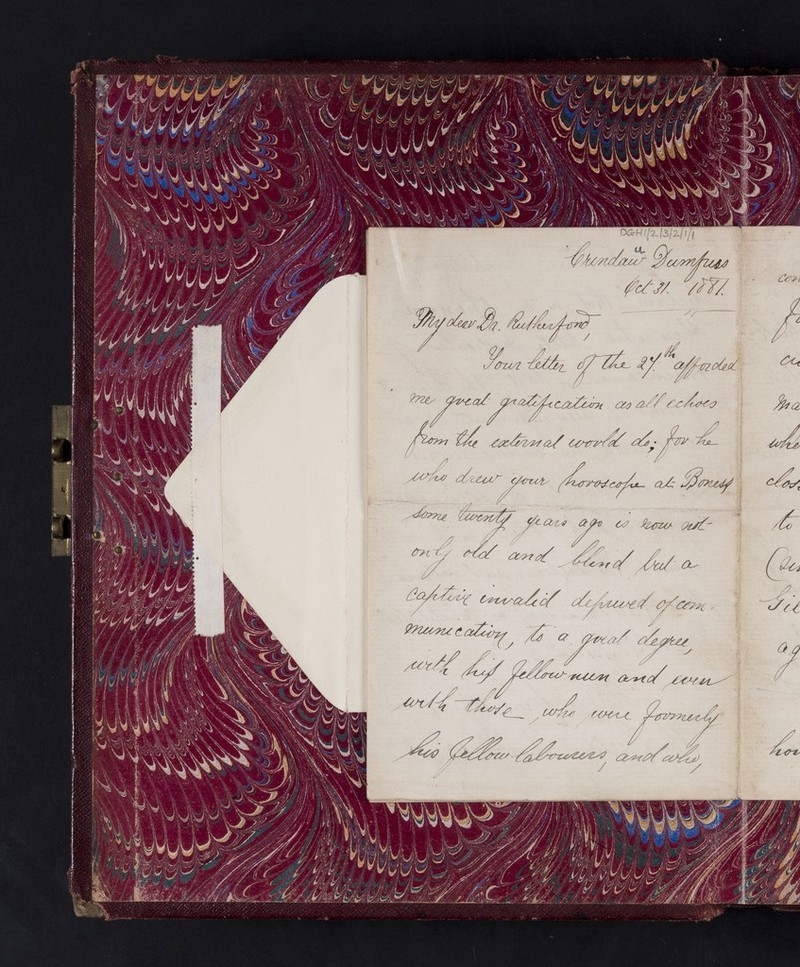 DGH1/2/3/2/1/1
Crindau Dumfries
Oct 31. 1881.
My dear Dr. Rutherford,
Your letter of the 27th afforded
me great gratification as all echoes
from the external world do; for he
who drew your horoscope at Boness
some twenty years ago is now not
only old and blind but a
captive invalid deprived of com-
munication, to a great degree,
with his fellow men and even
with those who were formerly
his fellow labourers, and who,
con
cr
ma
whe
clos
to
Gil
ag
hou